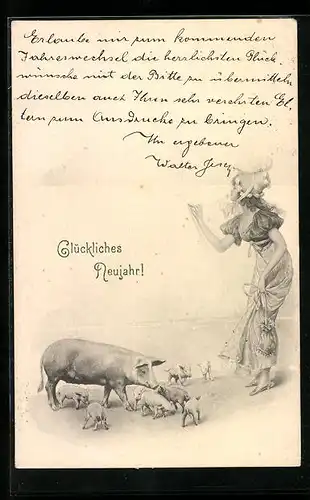 Erlaube mir zum kommenden
Jahreswechsel die herzlichsten Glück
wünsche mit der Bitte zu übermitteln
dieselben auch Ihren sehr verehrten El-
tern zum Ausdrucke zu bringen.
Ihr ergebener
Walter
Glückliches
Neujahr!